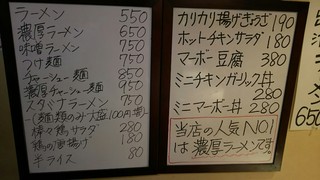 ラーメン 550
濃厚ラーメン 650
味噌ラーメン 750
つけ麺 750
チャーシュー麺 850
濃厚チャーシュー麺 950
スタミナラーメン 750
(麺類のみ大盛100円増)
棒々鶏サラダ 280
鶏の唐揚げ 180
半ライス 80
カリカリ揚げぎょうざ 190
ホットチキンサラダ 180
マーボー豆腐 380
ミニチキンガーリック丼 280
ミニマーボー丼 280
当店の人気NO1
は濃厚ラーメンです。
650